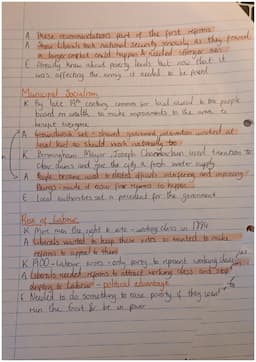 A These recommendations part of the first reforms
A Show Liberals took national security seriously as they feared
a larger conflict could happen & needed stronger men
E Already knew about poverty levels but now that it
was affecting the army it needed to be fixed
Municipal Socialism
K By late 19th century common for local council to tax people
based on wealth to make improvements to the area to
benefit everyone
A Groundwork set - showed government intervention worked at
local level so should work nationally too
K Birmingham Mayor Joseph Chamberlain used taxation to
clear slums and give the city a fresh water supply
A People became used to elected officials interfering and improving
things - made it easier for reforms to happen
E Local authorities set a precedent for the government
Rise of Labour
K More men the right to vote - working class in 1884
A Liberals wanted to keep these votes so wanted to make
reforms to appeal to them
K 1900 - Labour arises - only party to represent working class
A Liberals needed reforms to attract working class and stop
deflecting to Labour - political advantage
E Needed to do something to ease poverty if they want to
run the govt & be in power